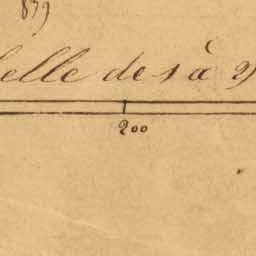 879
elle de 1 à 2
200